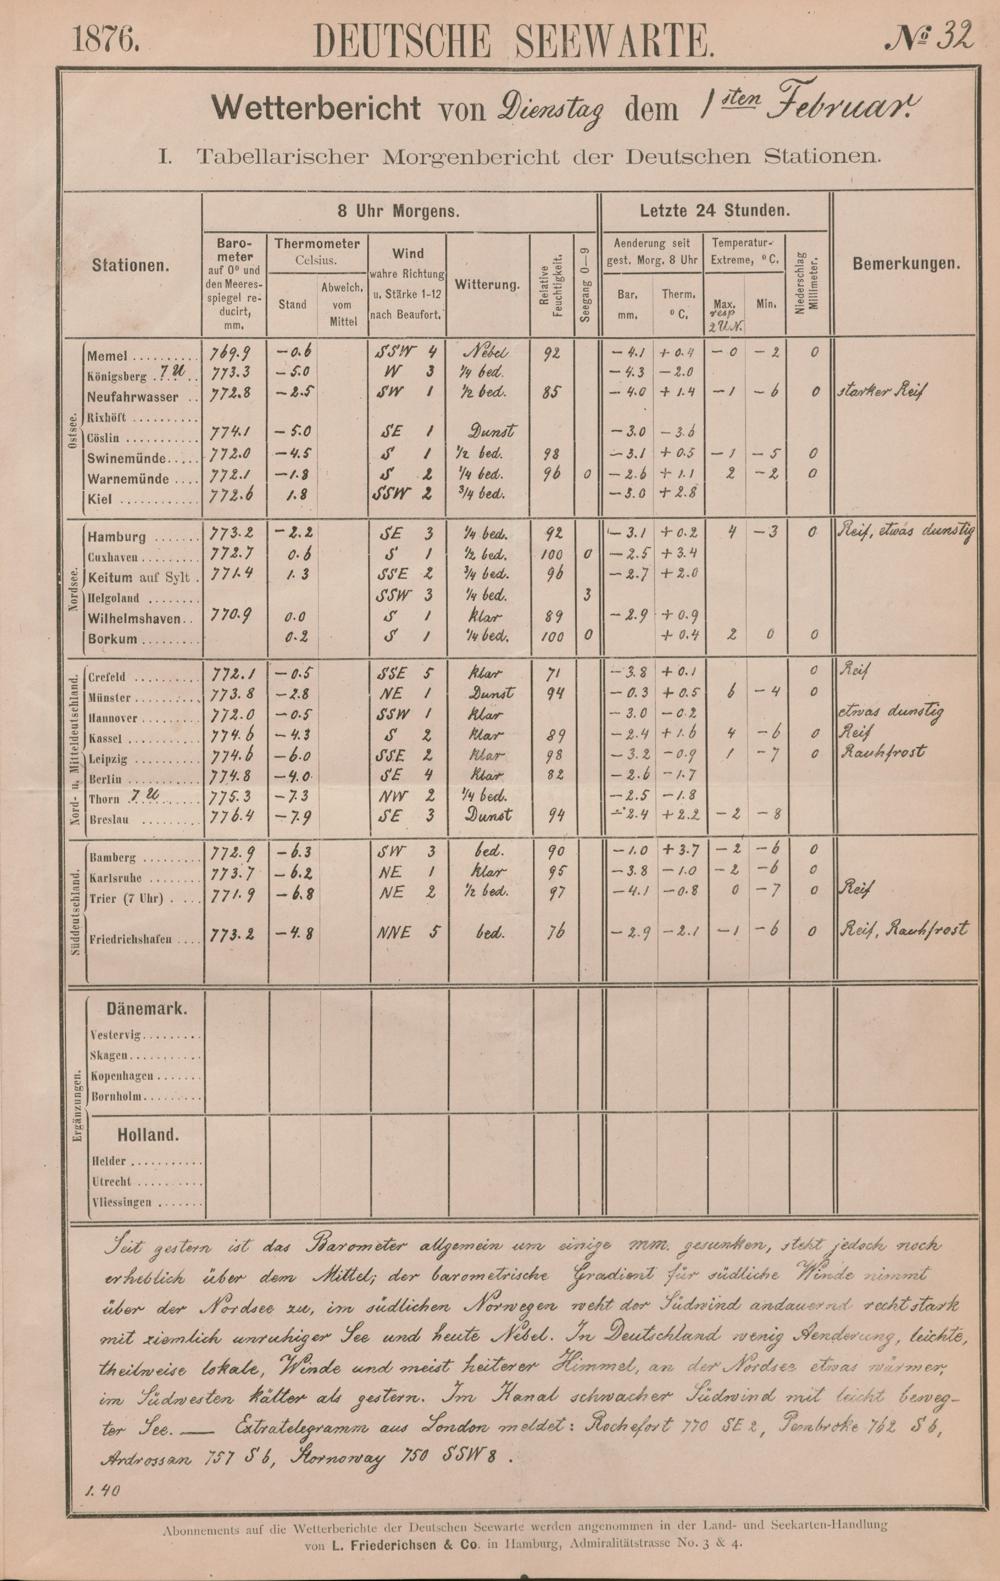 1876. DEUTSCHE SEEWARTE. No 32
Wetterbericht von Dienstag dem 1sten Februar.
I. Tabellarischer Morgenbericht der Deutschen Stationen.
Stationen. 8 Uhr Morgens. Letzte 24 Stunden. Bemerkungen.
Barometer auf 0° und den Meeresspiegel reducirt, mm.
Thermometer Celsius. Stand Abweich. vom Mittel
Wind wahre Richtung u. Stärke 1-12 nach Beaufort.
Witterung.
Relative Feuchtigkeit.
Seegang 0—9
Aenderung seit gest. Morg. 8 Uhr Bar. mm. Therm. °C.
Temperatur-Extreme, °C. Max. resp 2 U.N. Min.
Niederschlag Millimeter.
Ostsee.
Memel 769.9 −0.6 SSW 4 Nebel 92 −4.1 +0.4 −0 −2 0
Königsberg 7 U 773.3 −5.0 W 3 1/4 bed. −4.3 −2.0
Neufahrwasser 772.8 −2.5 SW 1 1/2 bed. 85 −4.0 +1.4 −1 −6 0 starker Reif
Rixhöft
Cöslin 774.1 −5.0 SE 1 Dunst −3.0 −3.6
Swinemünde 772.0 −4.5 S 1 1/2 bed. 98 −3.1 +0.5 −1 −5 0
Warnemünde 772.1 −1.8 S 2 1/4 bed. 96 0 −2.6 +1.1 2 −2 0
Kiel 772.6 1.8 SSW 2 3/4 bed. −3.0 +2.8
Nordsee.
Hamburg 773.2 −2.2 SE 3 1/4 bed. 92 −3.1 +0.2 4 −3 0 Reif, etwas dunstig
Cuxhaven 772.7 0.6 S 1 1/2 bed. 100 0 −2.5 +3.4
Keitum auf Sylt 771.4 1.3 SSE 2 3/4 bed. 96 −2.7 +2.0
Helgoland SSW 3 1/4 bed. 3
Wilhelmshaven 770.9 0.0 S 1 klar 89 −2.9 +0.9
Borkum 0.2 S 1 1/4 bed. 100 0 +0.4 2 0 0
Nord- u. Mitteldeutschland.
Crefeld 772.1 −0.5 SSE 5 klar 71 −3.8 +0.1 0 Reif
Münster 773.8 −2.8 NE 1 Dunst 94 −0.3 +0.5 6 −4 0
Hannover 772.0 −0.5 SSW 1 klar −3.0 −0.2 etwas dunstig
Kassel 774.6 −4.3 S 2 klar 89 −2.4 +1.6 4 −6 0 Reif
Leipzig 774.6 −6.0 SSE 2 klar 98 −3.2 −0.9 1 −7 0 Rauhfrost
Berlin 774.8 −4.0 SE 4 klar 82 −2.6 −1.7
Thorn 7 U 775.3 −7.3 NW 2 1/4 bed. −2.5 −1.8
Breslau 776.4 −7.9 SE 3 Dunst 94 −2.4 +2.2 −2 −8
Süddeutschland.
Bamberg 772.9 −6.3 SW 3 bed. 90 −1.0 +3.7 −2 −6 0
Karlsruhe 773.7 −6.2 NE 1 klar 95 −3.8 −1.0 −2 −6 0
Trier (7 Uhr) 771.9 −6.8 NE 2 1/2 bed. 97 −4.1 −0.8 0 −7 0 Reif
Friedrichshafen 773.2 −4.8 NNE 5 bed. 76 −2.9 −2.1 −1 −6 0 Reif, Rauhfrost
Ergänzungen.
Dänemark.
Vestervig
Skagen
Kopenhagen
Bornholm
Holland.
Helder
Utrecht
Vliessingen
Seit gestern ist das Barometer allgemein um einige mm. gesunken, steht jedoch noch
erheblich über dem Mittel; der barometrische Gradient für südliche Winde nimmt
über der Nordsee zu, im südlichen Norwegen weht der Südwind andauernd recht stark
mit ziemlich unruhiger See und heute Nebel. In Deutschland wenig Aenderung, leichte,
theilweise lokale, Winde und meist heiterer Himmel, an der Nordsee etwas wärmer,
im Südwesten kälter als gestern. Im Kanal schwacher Südwind mit leicht beweg-
ter See. — Extratelegramm aus London meldet: Rochefort 770 SE 2, Pembroke 762 S 6,
Ardrossan 757 S 6, Stornoway 750 SSW 8.
1.40
Abonnements auf die Wetterberichte der Deutschen Seewarte werden angenommen in der Land- und Seekarten-Handlung
von L. Friederichsen & Co. in Hamburg, Admiralitätstrasse No. 3 & 4.